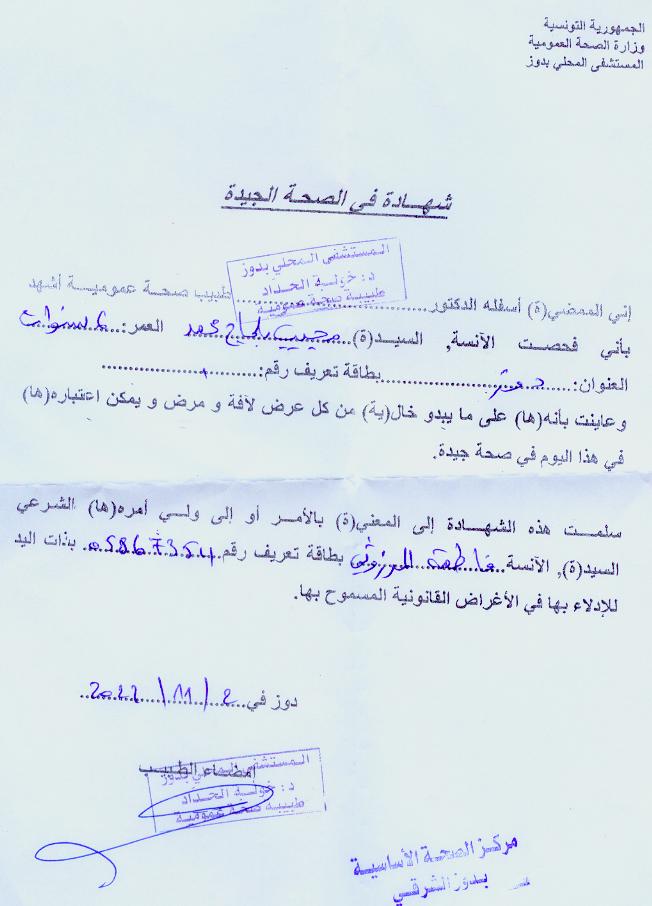 الجمهورية التونسية
وزارة الصحة العمومية
المستشفى المحلي بدوز
شهادة في الصحة الجيدة
المستشفى المحلي بدوز
د: خولة الحداد
طبيبة صحة عمومية
إني الممضي(ة) أسفله الدكتور........................................طبيب صحة عمومية أشهد
بأني فحصت الآنسة, السيد(ة)... محمد العمر:... سنوات
العنوان:......دوز......................بطاقة تعريف رقم:........................
وعاينت بأنه(ها) على ما يبدو خال(ية) من كل عرض لآفة و مرض و يمكن اعتباره(ها)
في هذا اليوم في صحة جيدة.
سلمت هذه الشهادة إلى المعني(ة) بالأمر أو إلى ولي أمره(ها) الشرعي
السيد(ة), الآنسة..فاطمة المرزوقي بطاقة تعريف رقم بذات اليد
للإدلاء بها في الأغراض القانونية المسموح بها.
دوز في...2/11/2022..
إمضاء الطبيب
المستشفى المحلي بدوز
د: خولة الحداد
طبيبة صحة عمومية
مركز الصحة الأساسية
بدوز الشرقي